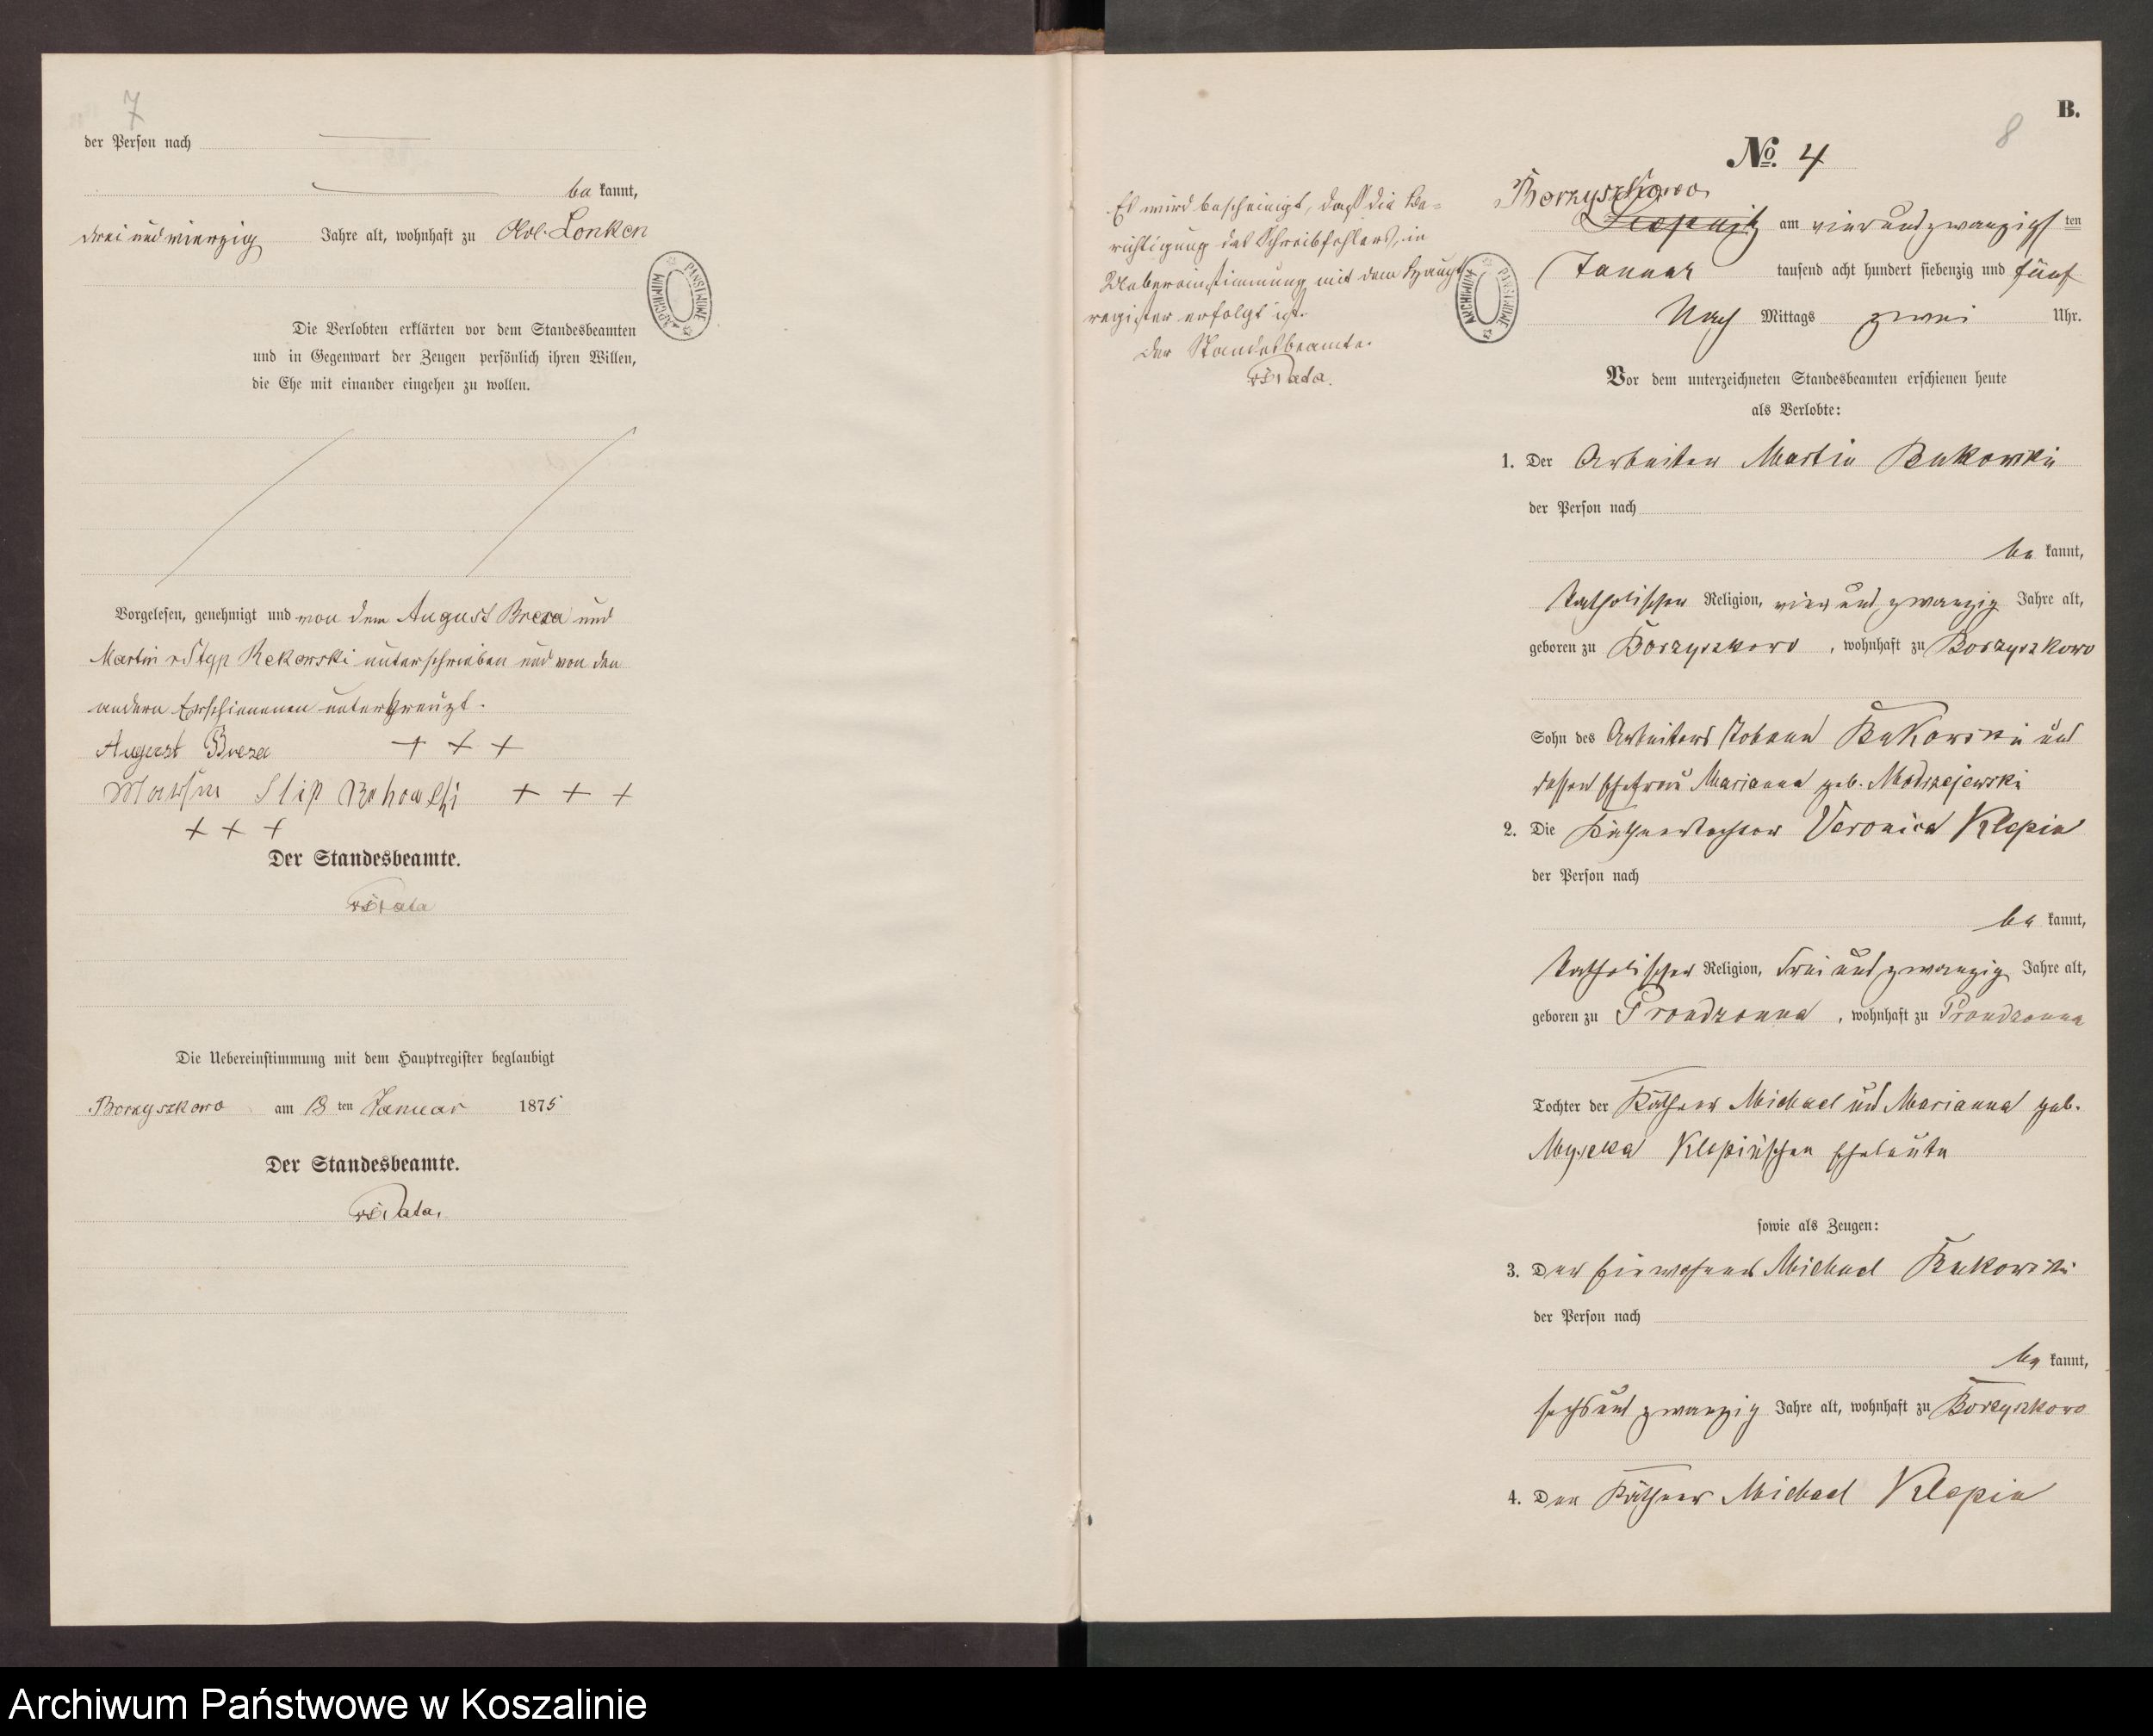 7
der Person nach
be kannt,
drei und vierzig Jahre alt, wohnhaft zu Adl. Lonken
ARCHIWUM PAŃSTWOWE
Die Verlobten erklärten vor dem Standesbeamten
und in Gegenwart der Zeugen persönlich ihren Willen,
die Ehe mit einander eingehen zu wollen.
Vorgelesen, genehmigt und von dem August Breza und
Martin v Styp Rekowski unterschrieben und von den
andern Erschienenen unterkreuzt.
August Breza + + +
Martin Stip Rekowski + + +
+ + +
Der Standesbeamte.
Die Uebereinstimmung mit dem Hauptregister beglaubigt
Borzyszkowo am 18 ten Januar 1875
Der Standesbeamte.
B.
8
No. 4
Es wird bescheinigt, daß die Be-
richtigung des Schreibfehlers, in
Uebereinstimmung mit dem Haupt
register erfolgt ist.
Der Standesbeamte.
ARCHIWUM PAŃSTWOWE
Borzyszkowo
am vier und zwanzigs ten
Januar tausend acht hundert siebenzig und fünf
Nach Mittags zwei Uhr.
Vor dem unterzeichneten Standesbeamten erschienen heute
als Verlobte:
1. Der Arbeiter Martin Bukowski
der Person nach
be kannt,
katholischer Religion, vier und zwanzig Jahre alt,
geboren zu Borzyszkowo, wohnhaft zu Borzyszkowo
Sohn des Arbeiters Johann Bukowski und
dessen Ehefrau Marianna geb. Modrzejewski
2. Die Käthnertochter Veronica Klopin
der Person nach
be kannt,
katholischer Religion, drei und zwanzig Jahre alt,
geboren zu Prondzonna, wohnhaft zu Prondzonna
Tochter der Käthner Michael und Marianna geb.
Klopin'schen Eheleute
sowie als Zeugen:
3. Der Einwohner Michael Bukowski
der Person nach
be kannt,
sechs und zwanzig Jahre alt, wohnhaft zu Borzyszkowo
4. Der Käthner Michael Klopin
Archiwum Państwowe w Koszalinie